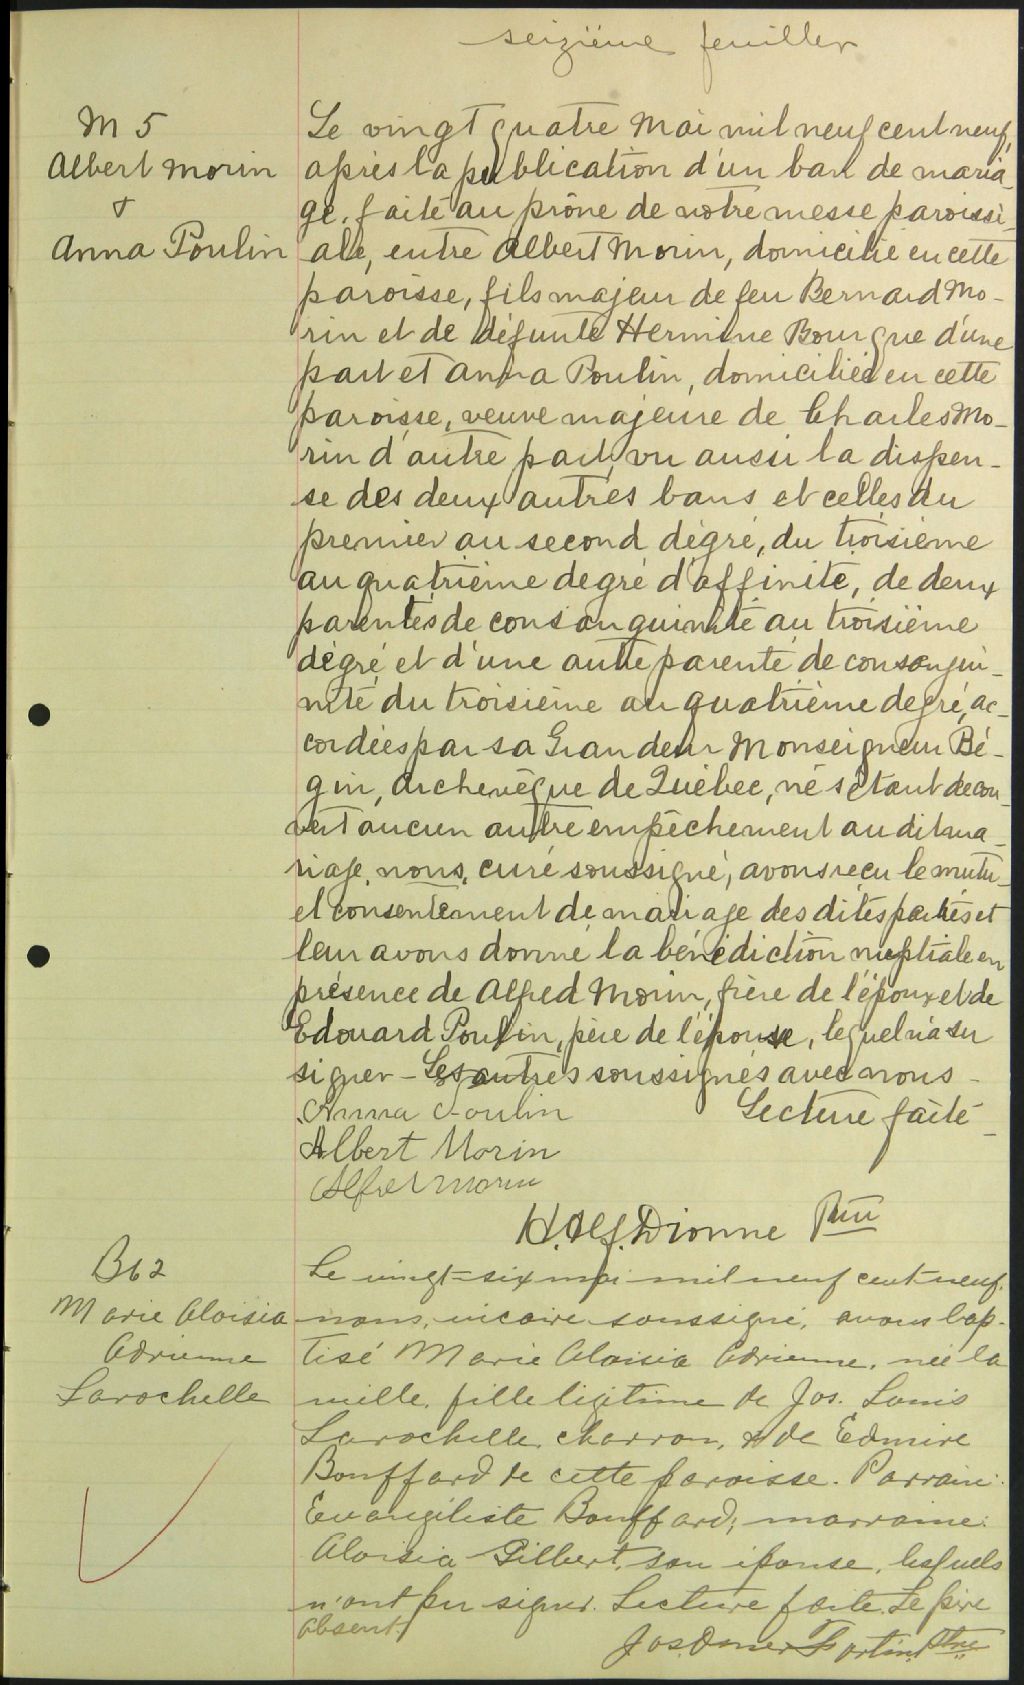 seizième feuillet
M 5
Albert Morin
&
Anna Poulin
Le vingt quatre Mai mil neuf cent neuf,
après la publication d'un ban de maria-
ge, faite au prône de notre messe paroissi-
ale, entre Albert Morin, domicilié en cette
paroisse, fils majeur de feu Bernard Mo-
rin et de défunte Hermine Bourque d'une
part et Anna Poulin, domiciliée en cette
paroisse, veuve majeure de Charles Mo-
rin d'autre part, vu aussi la dispen-
se des deux autres bans et celles du
premier au second dégré, du troisième
au quatrième degré d'affinité, de deux
parentés de consanguinité au troisième
dégré et d'une autre parenté de consangui-
nité du troisième au quatrième degré, ac-
cordées par sa Grandeur Monseigneur Bé-
gin, archevêque de Québec, ne s'étant décou-
vert aucun autre empêchement au dit ma-
riage, nous, curé soussigné, avons reçu le mutu-
el consentement de mariage des dites parties et
leur avons donné la bénédiction nuptiale en
présence de Alfred Morin, frère de l'époux et de
Edouard Poulin, père de l'épouse, lequel n'a su
signer - Les autres soussignés avec nous -
Lecture faite -
Anna Poulin
Albert Morin
Alfred Morin
H. Alf. Dionne Ptre
B 62
Marie Aloisia
Adrienne
Larochelle
Le vingt-six mai mil neuf cent neuf,
nous, vicaire soussigné, avons bap-
tisé Marie Aloisia Adrienne, née la
veille, fille légitime de Jos. Louis
Larochelle, charron, & de Edmire
Bouffard de cette paroisse. Parrain:
Evangéliste Bouffard; marraine:
Aloisia Gilbert, son épouse, lesquels
n'ont pu signer. Lecture faite. Le père
absent.
Jos. Omer Fortin, Ptre